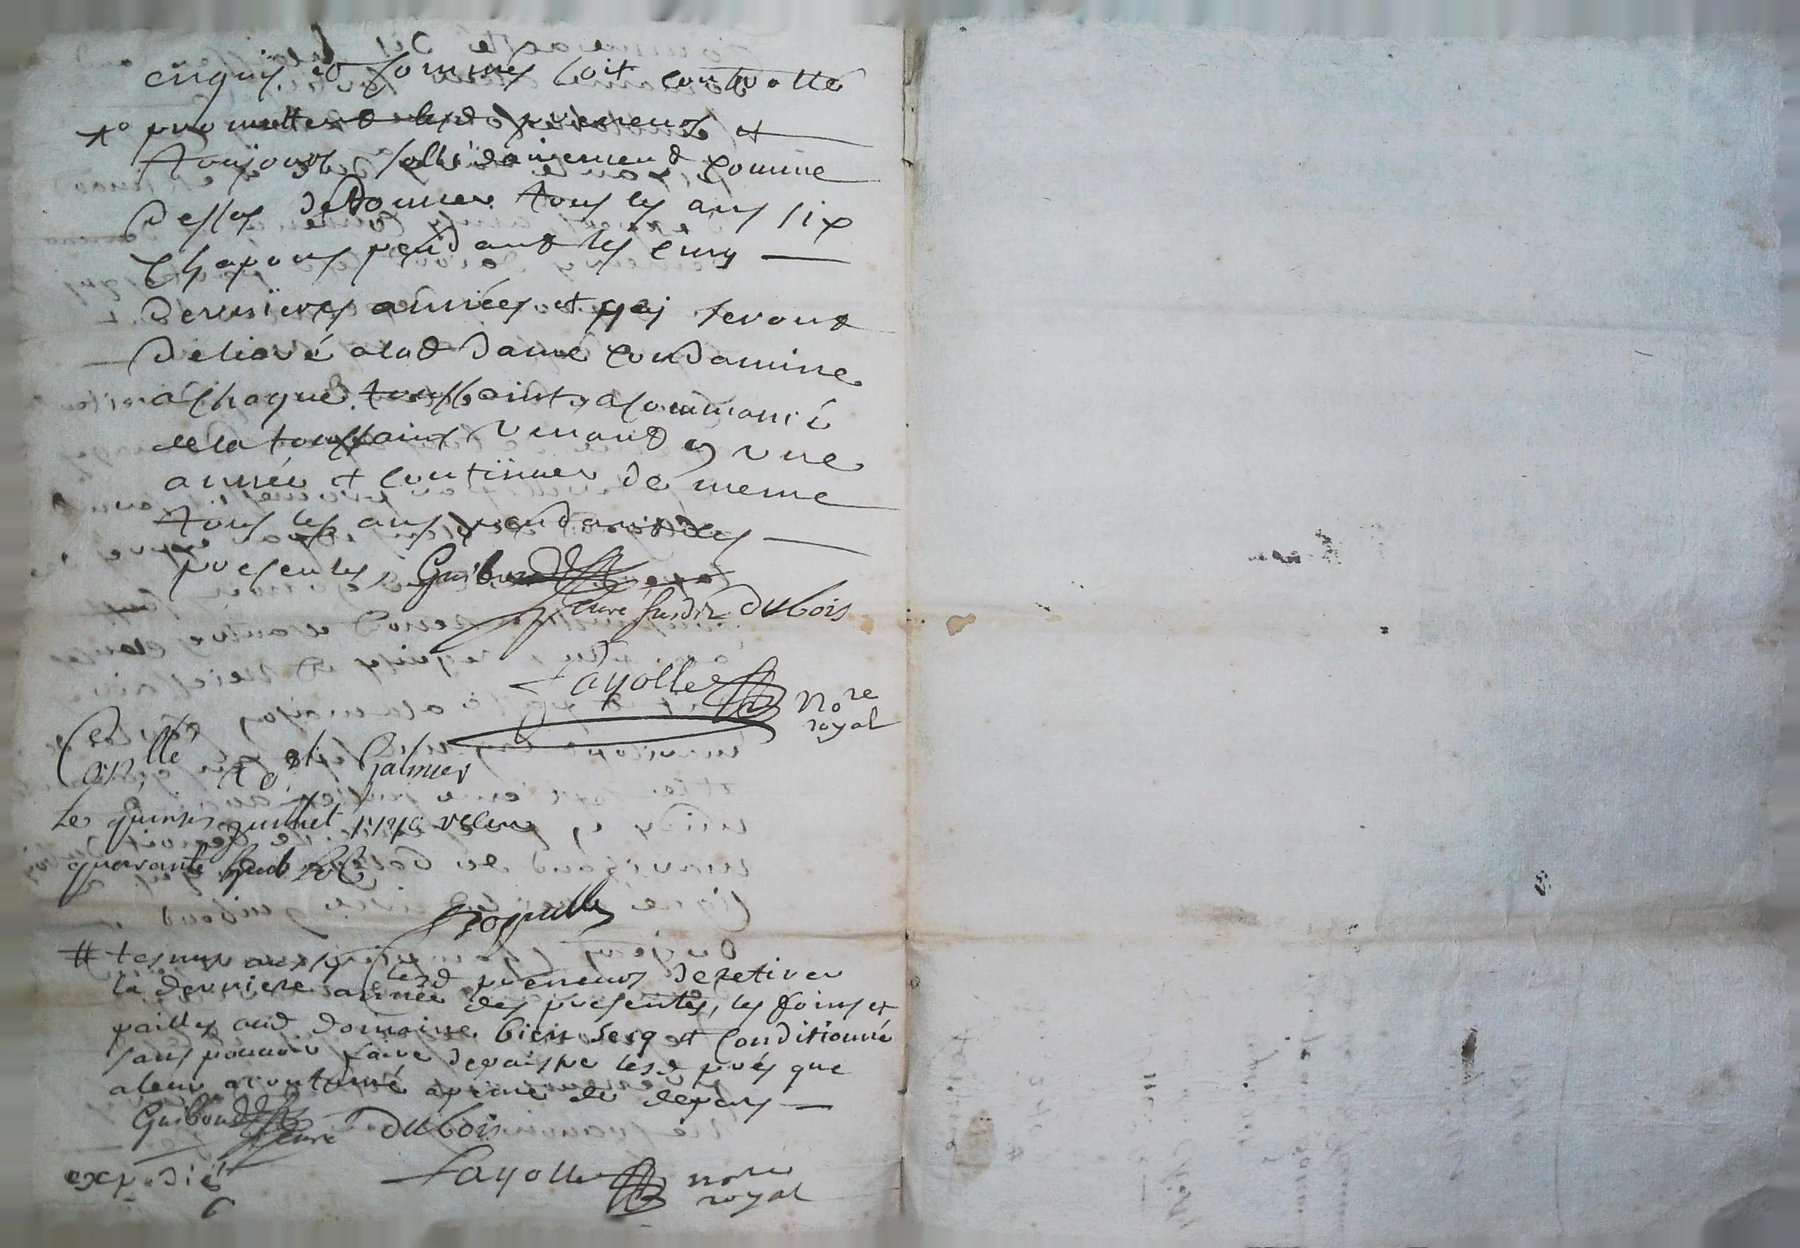 enquis et sommés soit controllé
promettent lesd preneurs et
toujours sollidairement comme
dessus de donner tous les ans six
chapons pendant les cinq
dernieres années et qui seront
delivré alad dame condamine
a chaque toussaint, a commancé
de la toussaint venant en une
année et continuer de meme
tous les ans pendant les
presentes, Guiboud
cure dubois
fayolle nore
royal
Conllé a st Galmier
le quinse juillet
quarante
# tenus aussy lesd preneurs de retirer
la derniere année des presentes, les foins et
pailles aud domaine bien secq et conditionné
sans pouvoir faire depaistre lesd prés que
a leur acoutumé a peine de depens
Guiboud cure dubois
expedié fayolle nore
royal